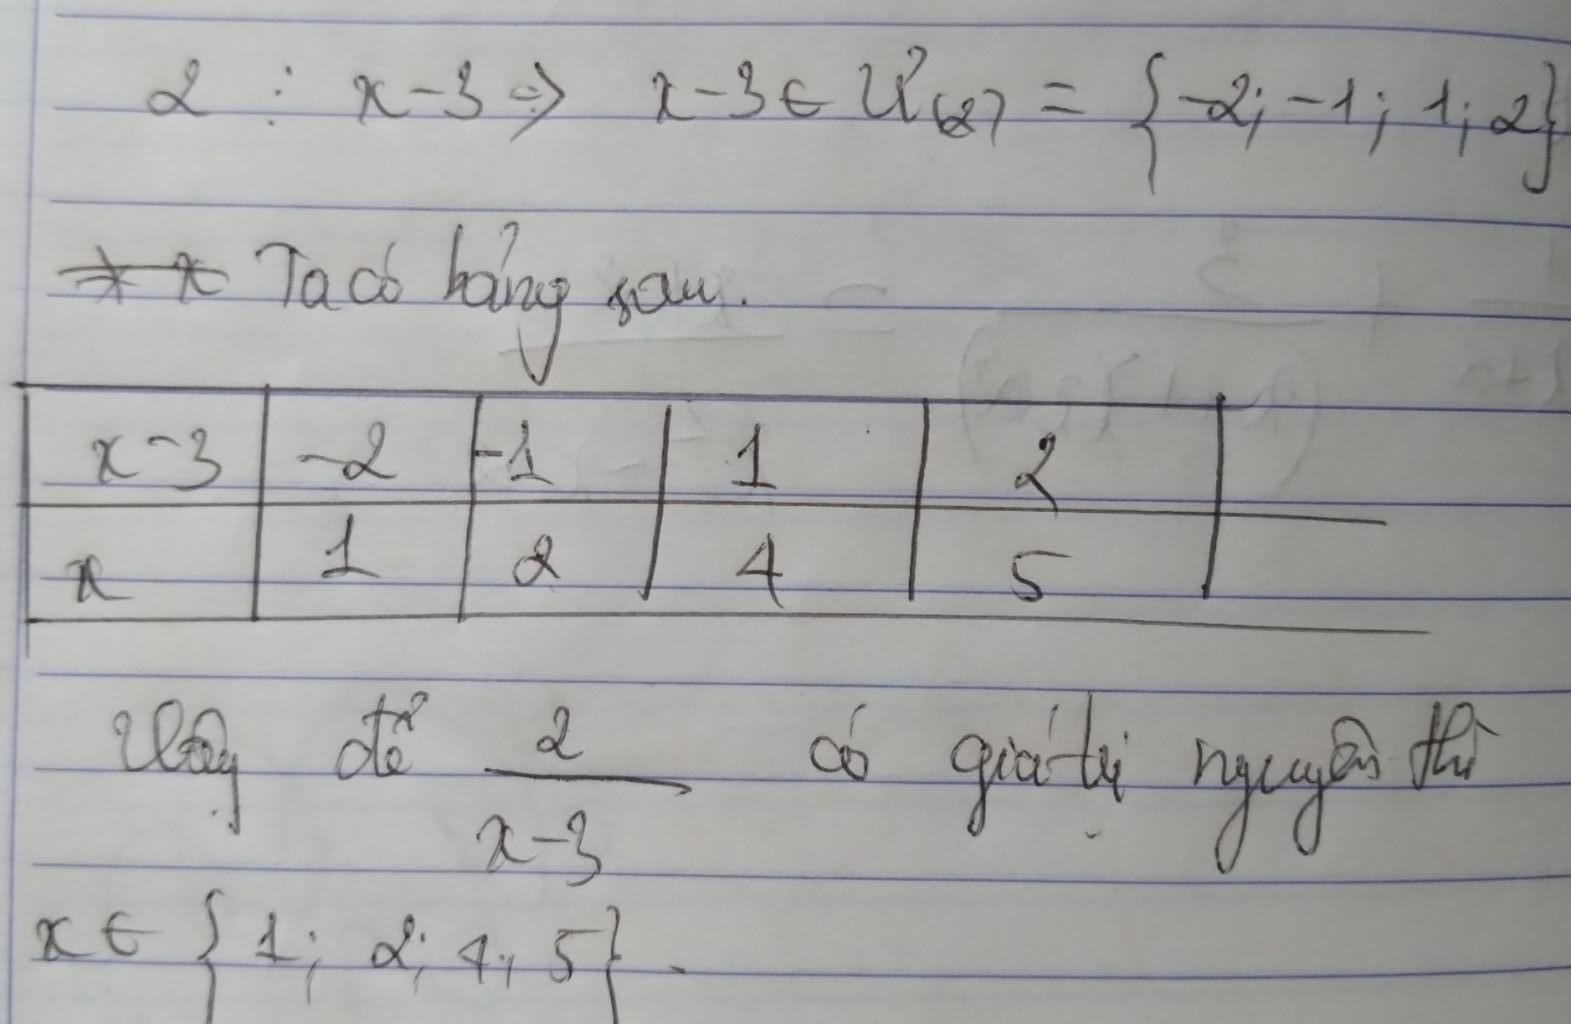 2 ⋮ x-3 => x-3 ∈ Ư(2) = {-2; -1; 1; 2}
Ta có bảng sau.
x-3 -2 -1 1 2
x 1 2 4 5
Vậy để 2/(x-3) có giá trị nguyên thì
x ∈ {1; 2; 4; 5}.